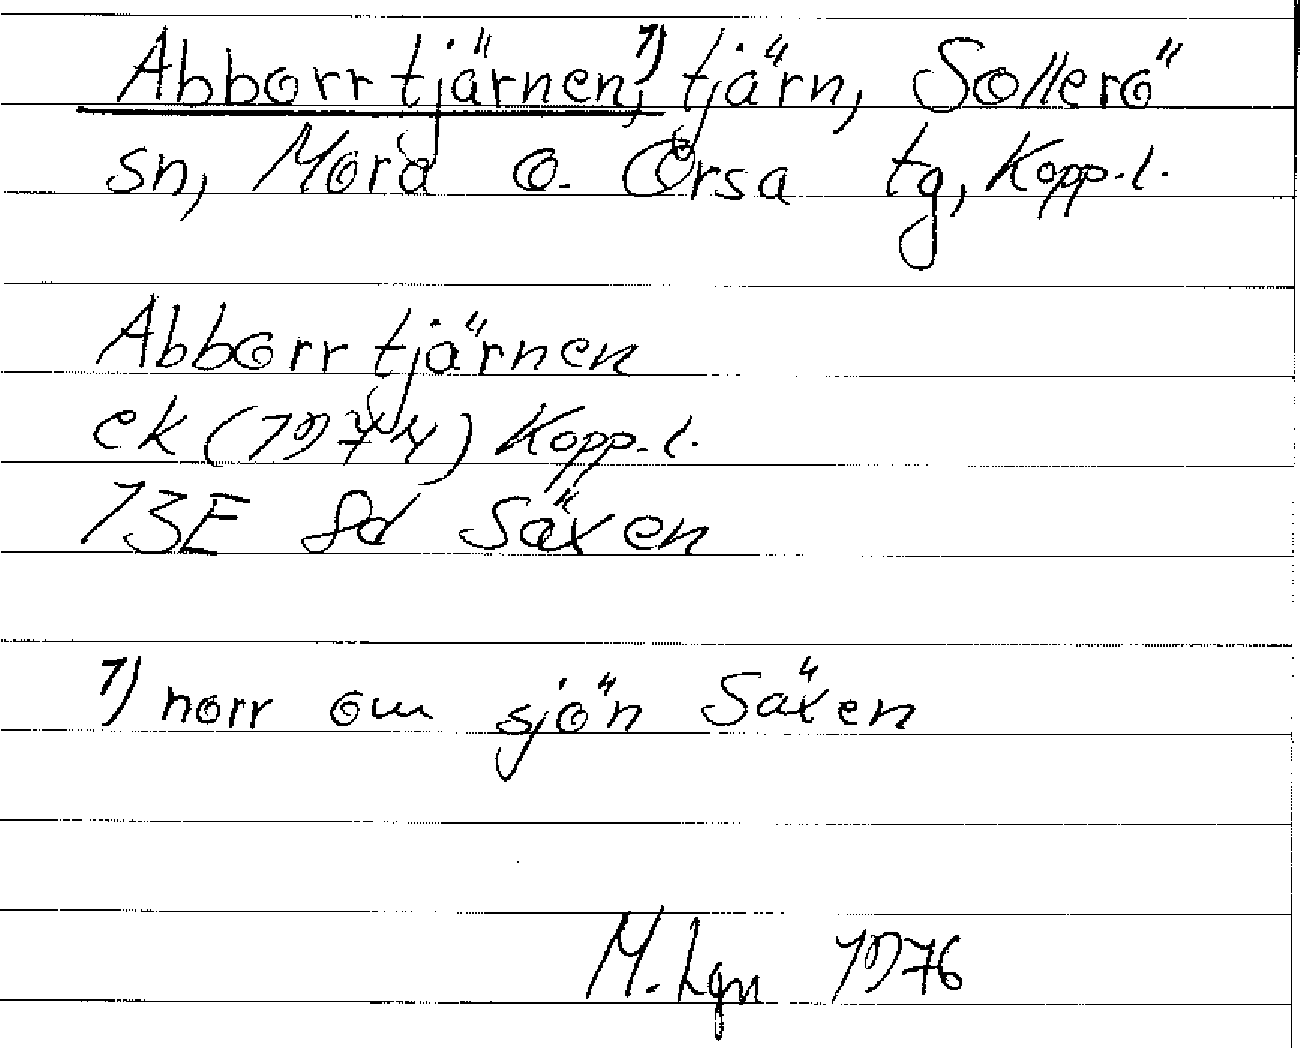 Abborrtjärnen,¹⁾ tjärn, Sollerö
sn, Mora o. Orsa tg, Kopp.l.
Abborrtjärnen
ek (1974) Kopp.l.
13E 8d Säxen
¹⁾ norr om sjön Säxen
M. Lgn 1976